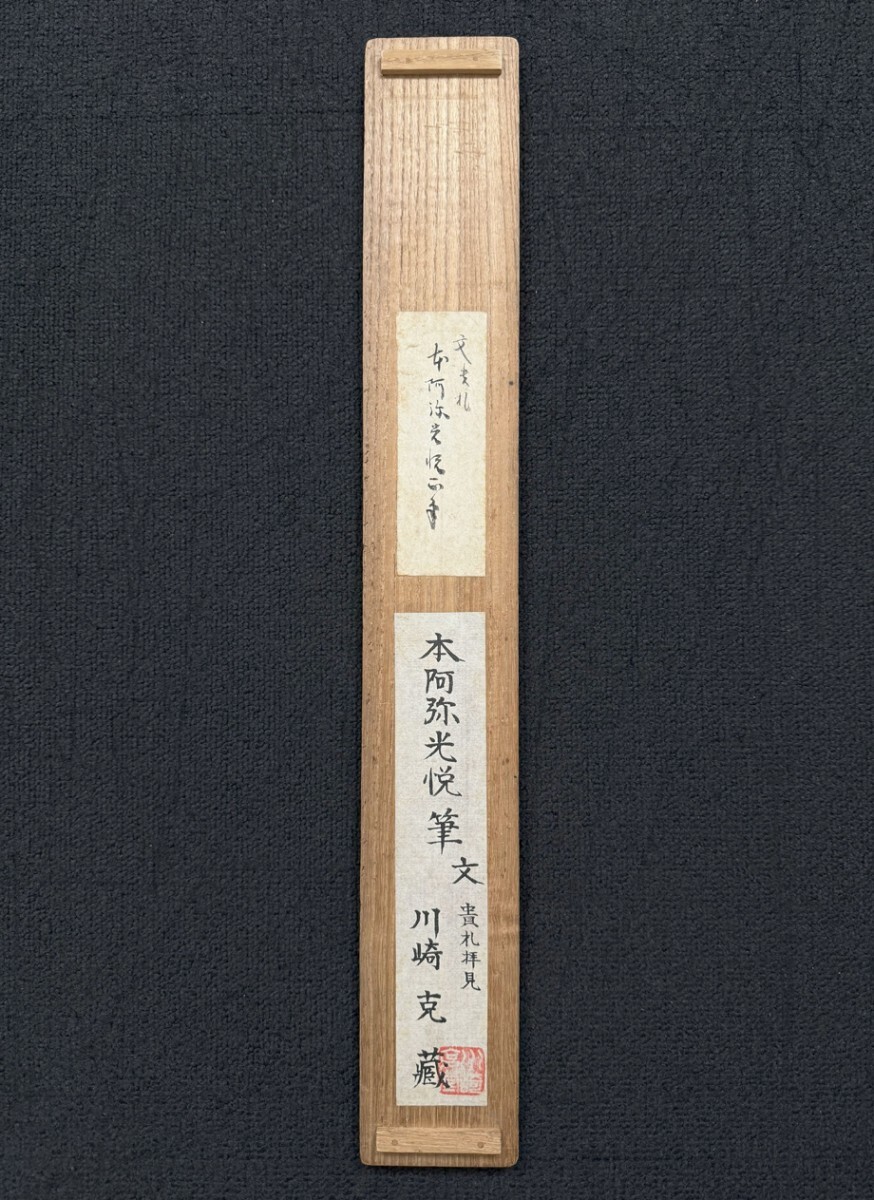 文貴札
本阿弥光悦正筆
本阿弥光悦筆
文
貴札拝見
川崎克蔵